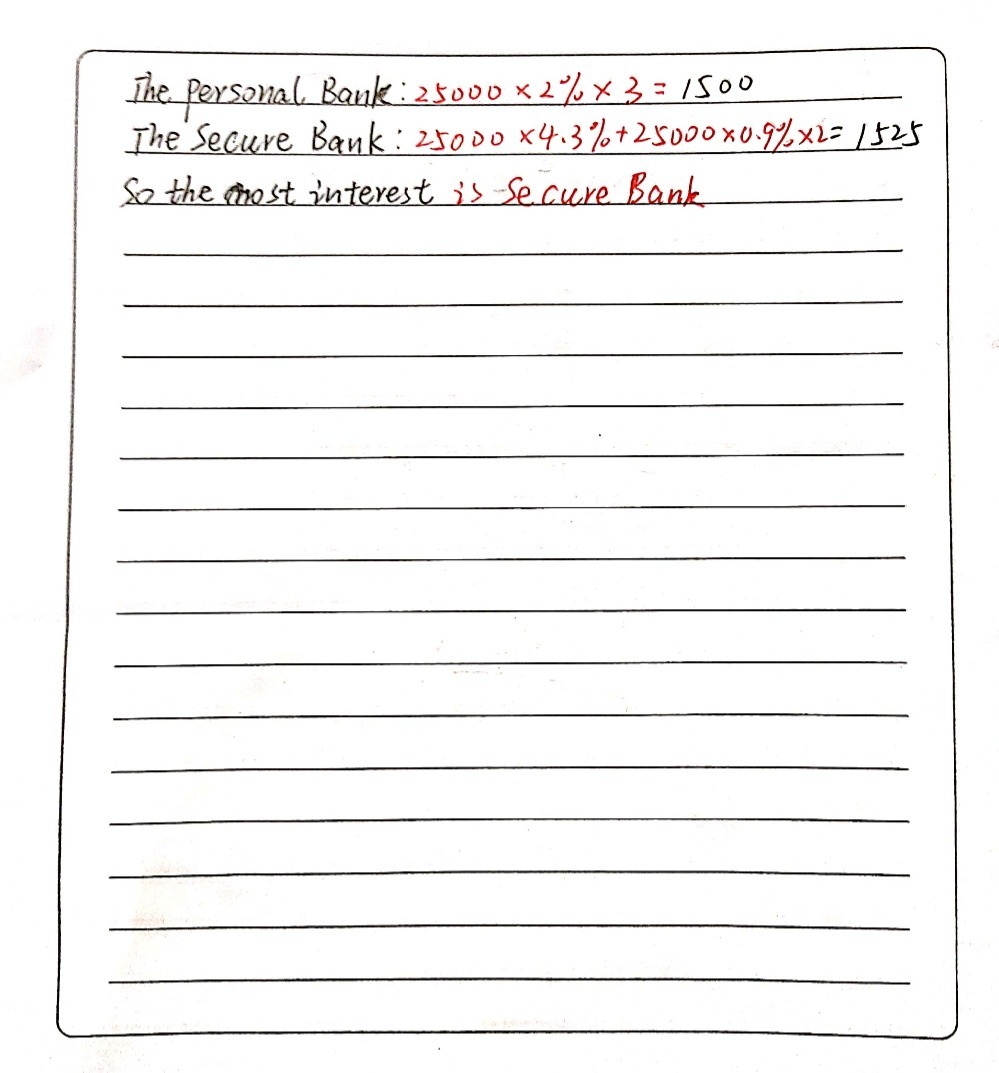 The personal Bank: 25000 × 2% × 3 = 1500
The Secure Bank: 25000 × 4.3% + 25000 × 0.9% × 2 = 1525
So the most interest is Secure Bank